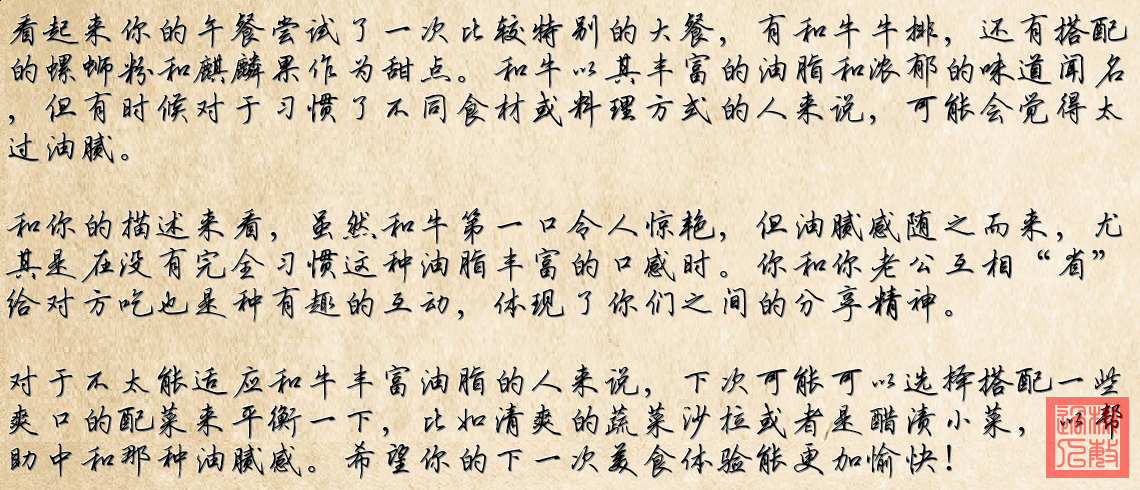 看起来你的午餐尝试了一次比较特别的大餐，有和牛牛排，还有搭配
的螺蛳粉和麒麟果作为甜点。和牛以其丰富的油脂和浓郁的味道闻名
，但有时候对于习惯了不同食材或料理方式的人来说，可能会觉得太
过油腻。
和你的描述来看，虽然和牛第一口令人惊艳，但油腻感随之而来，尤
其是在没有完全习惯这种油脂丰富的口感时。你和你老公互相“省”
给对方吃也是种有趣的互动，体现了你们之间的分享精神。
对于不太能适应和牛丰富油脂的人来说，下次可能可以选择搭配一些
爽口的配菜来平衡一下，比如清爽的蔬菜沙拉或者是醋渍小菜，以帮
助中和那种油腻感。希望你的下一次美食体验能更加愉快！